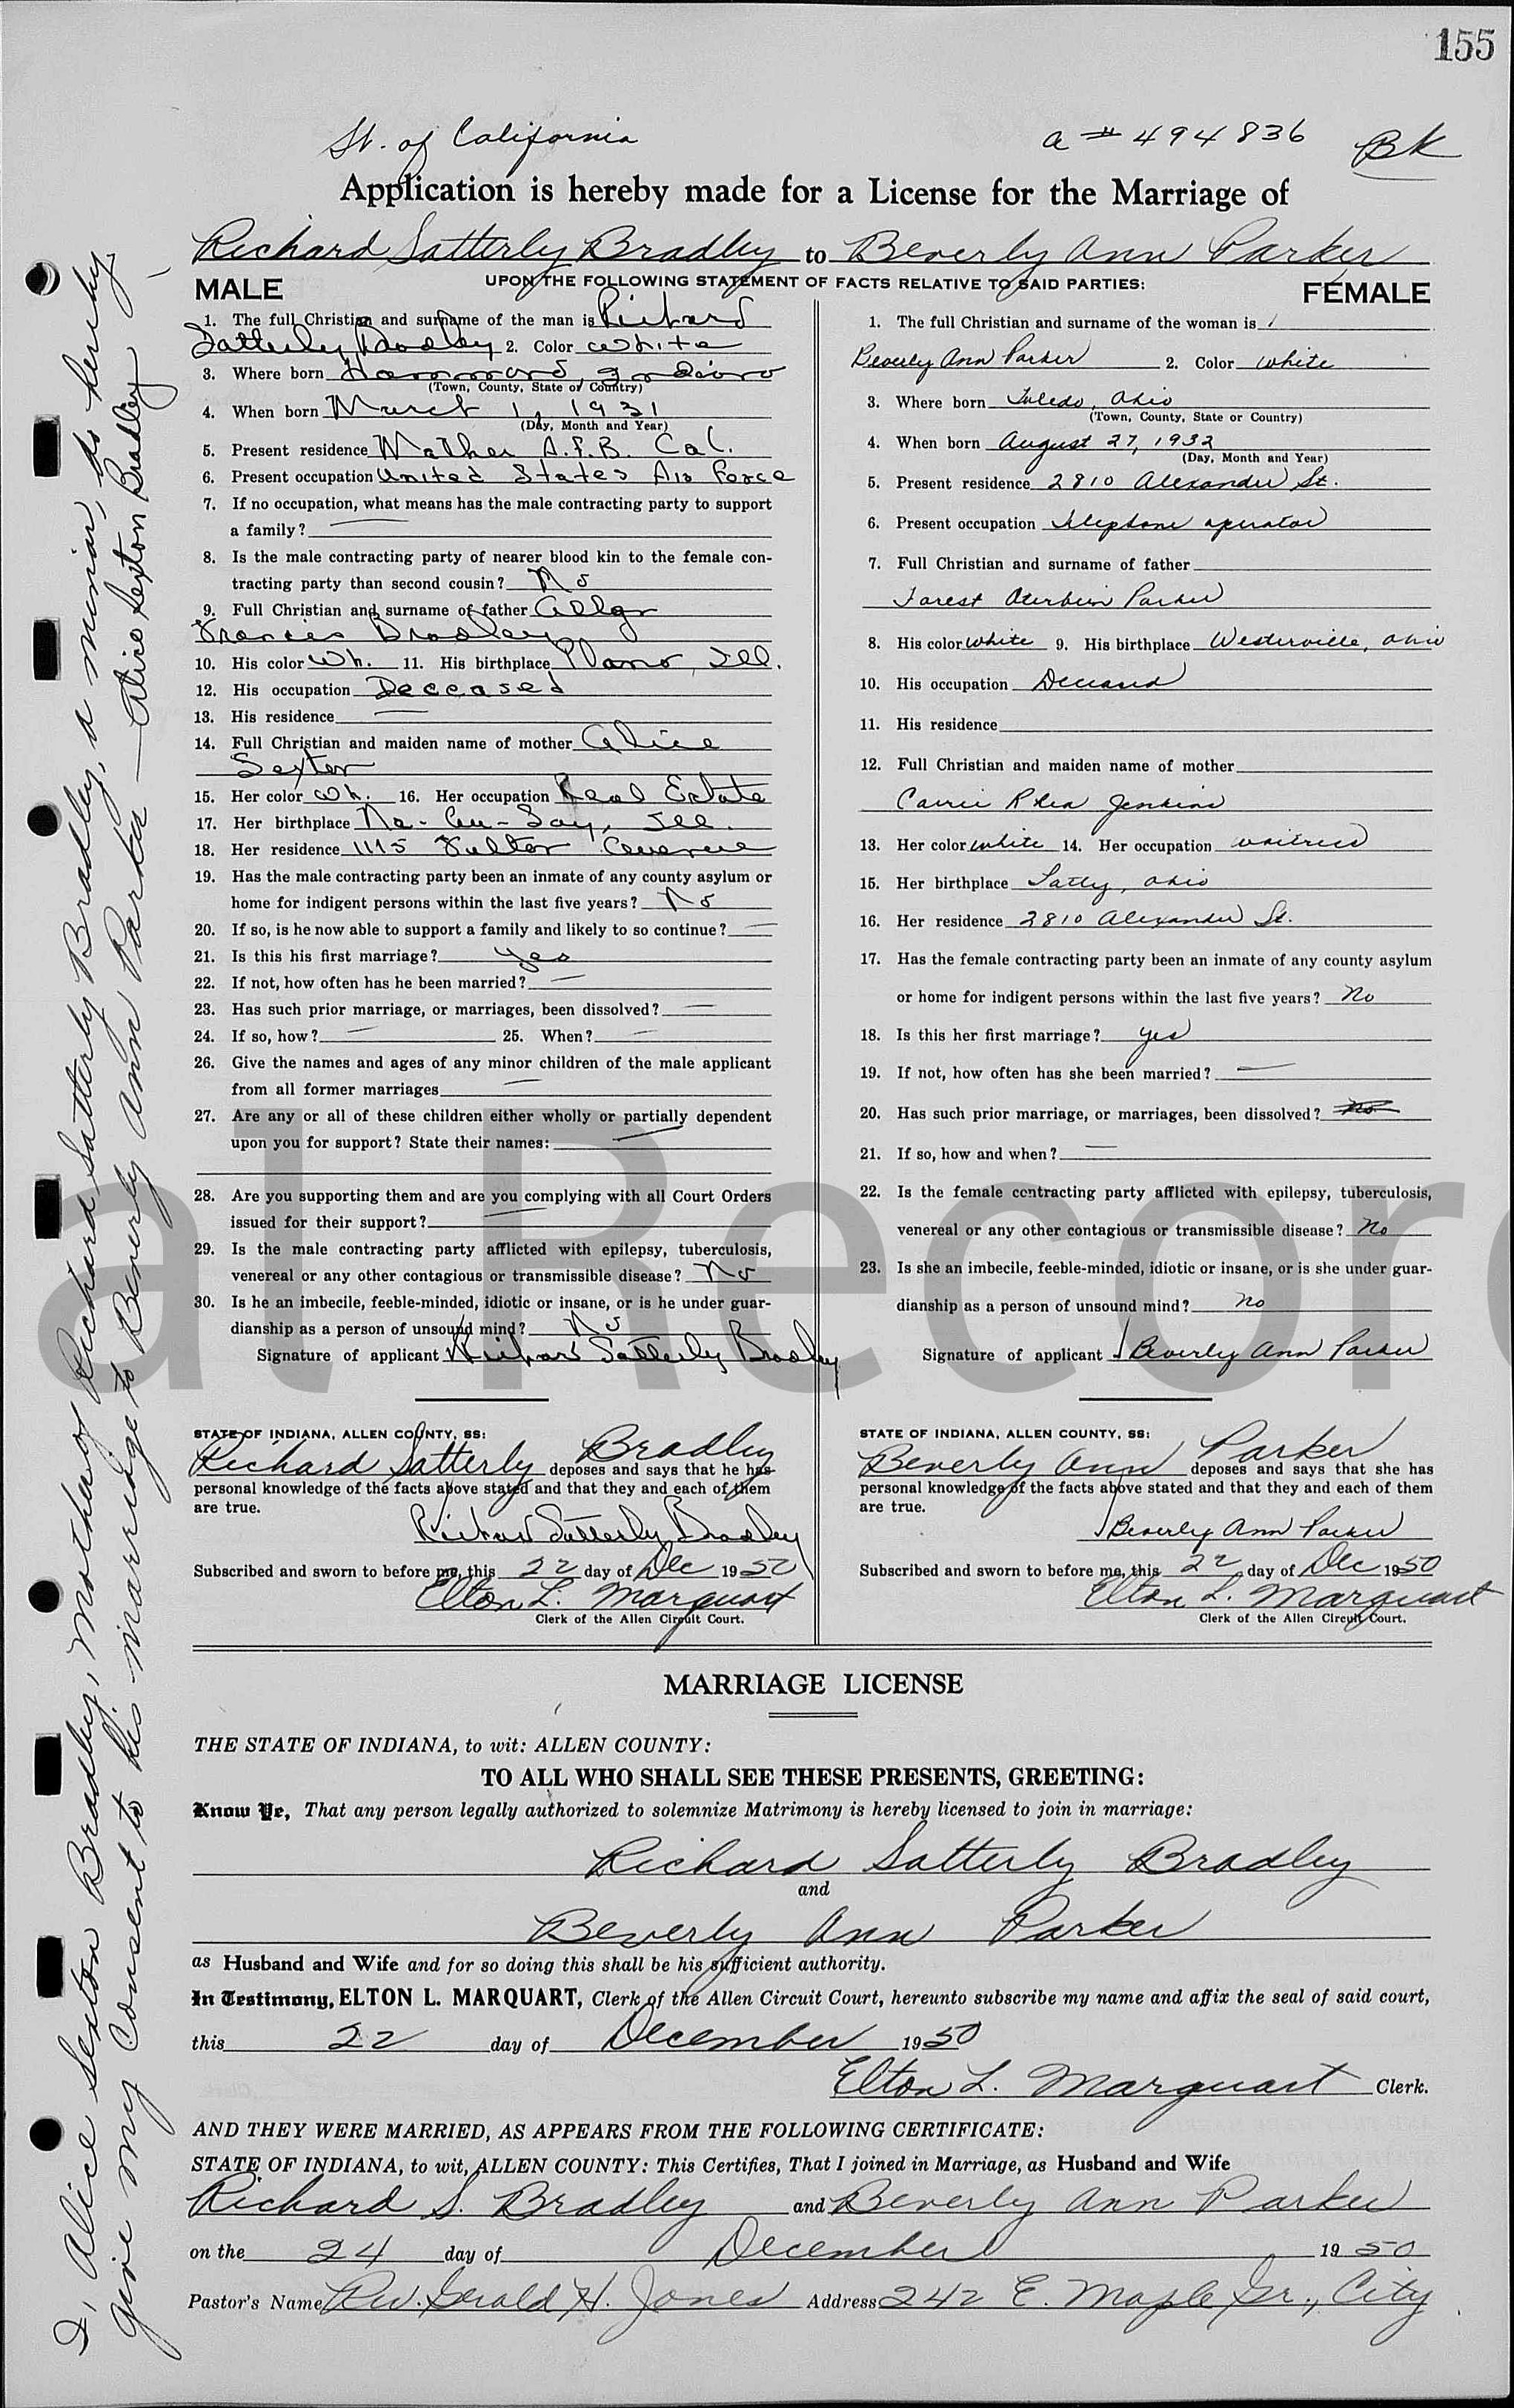 155
St. of California
a # 494836
BK
Application is hereby made for a License for the Marriage of
Richard Satterly Bradley to Beverly Ann Parker
UPON THE FOLLOWING STATEMENT OF FACTS RELATIVE TO SAID PARTIES:
MALE
1. The full Christian and surname of the man is Richard
Satterly Bradley 2. Color White
3. Where born Hammond, Indiana
(Town, County, State or Country)
4. When born March 1, 1931
(Day, Month and Year)
5. Present residence Mather A.F.B. Cal.
6. Present occupation United States Air Force
7. If no occupation, what means has the male contracting party to support
a family? —
8. Is the male contracting party of nearer blood kin to the female con-
tracting party than second cousin? No
9. Full Christian and surname of father
Francis Bradley
10. His color Wh. 11. His birthplace Plano, Ill.
12. His occupation Deceased
13. His residence —
14. Full Christian and maiden name of mother Alice
Sexton
15. Her color Wh. 16. Her occupation Real Estate
17. Her birthplace Na-Au-Say, Ill.
18. Her residence 1115 Fulton Avenue
19. Has the male contracting party been an inmate of any county asylum or
home for indigent persons within the last five years? No
20. If so, is he now able to support a family and likely to so continue? —
21. Is this his first marriage? Yes
22. If not, how often has he been married? —
23. Has such prior marriage, or marriages, been dissolved? —
24. If so, how? — 25. When? —
26. Give the names and ages of any minor children of the male applicant
from all former marriages —
27. Are any or all of these children either wholly or partially dependent
upon you for support? State their names: —
28. Are you supporting them and are you complying with all Court Orders
issued for their support? —
29. Is the male contracting party afflicted with epilepsy, tuberculosis,
venereal or any other contagious or transmissible disease? No
30. Is he an imbecile, feeble-minded, idiotic or insane, or is he under guar-
dianship as a person of unsound mind? No
Signature of applicant Richard Satterly Bradley
STATE OF INDIANA, ALLEN COUNTY, SS:
Richard Satterly Bradley deposes and says that he has
personal knowledge of the facts above stated and that they and each of them
are true.
Richard Satterly Bradley
Subscribed and sworn to before me, this 22 day of Dec 1950
Elton L. Marquart
Clerk of the Allen Circuit Court.
FEMALE
1. The full Christian and surname of the woman is
Beverly Ann Parker 2. Color White
3. Where born Toledo, Ohio
(Town, County, State or Country)
4. When born August 27, 1932
(Day, Month and Year)
5. Present residence 2810 Alexander St.
6. Present occupation Telephone operator
7. Full Christian and surname of father
Forest Oterbien Parker
8. His color White 9. His birthplace Westerville, Ohio
10. His occupation Deceased
11. His residence
12. Full Christian and maiden name of mother
Carrie Rhea Jenkins
13. Her color White 14. Her occupation Waitress
15. Her birthplace Latty, Ohio
16. Her residence 2810 Alexander St.
17. Has the female contracting party been an inmate of any county asylum
or home for indigent persons within the last five years? No
18. Is this her first marriage? yes
19. If not, how often has she been married? —
20. Has such prior marriage, or marriages, been dissolved? no
21. If so, how and when? —
22. Is the female contracting party afflicted with epilepsy, tuberculosis,
venereal or any other contagious or transmissible disease? No
23. Is she an imbecile, feeble-minded, idiotic or insane, or is she under guar-
dianship as a person of unsound mind? no
Signature of applicant Beverly Ann Parker
STATE OF INDIANA, ALLEN COUNTY, SS:
Beverly Ann Parker deposes and says that she has
personal knowledge of the facts above stated and that they and each of them
are true.
Beverly Ann Parker
Subscribed and sworn to before me, this 22 day of Dec 1950
Elton L. Marquart
Clerk of the Allen Circuit Court.
MARRIAGE LICENSE
THE STATE OF INDIANA, to wit: ALLEN COUNTY:
TO ALL WHO SHALL SEE THESE PRESENTS, GREETING:
Know Ye, That any person legally authorized to solemnize Matrimony is hereby licensed to join in marriage:
Richard Satterly Bradley
and
Beverly Ann Parker
as Husband and Wife and for so doing this shall be his sufficient authority.
In Testimony, ELTON L. MARQUART, Clerk of the Allen Circuit Court, hereunto subscribe my name and affix the seal of said court,
this 22 day of December 1950
Elton L. Marquart Clerk.
AND THEY WERE MARRIED, AS APPEARS FROM THE FOLLOWING CERTIFICATE:
STATE OF INDIANA, to wit, ALLEN COUNTY: This Certifies, That I joined in Marriage, as Husband and Wife
Richard S. Bradley and Beverly Ann Parker
on the 24 day of December 1950
Pastor's Name Rev. Gerald H. Jones Address 242 E. Maple Gr., City
I, Alice Sexton Bradley, Mother of Richard Satterly Bradley, a minor, do hereby
give my Consent to his marriage to Beverly Ann Parker — Alice Sexton Bradley
al Recor